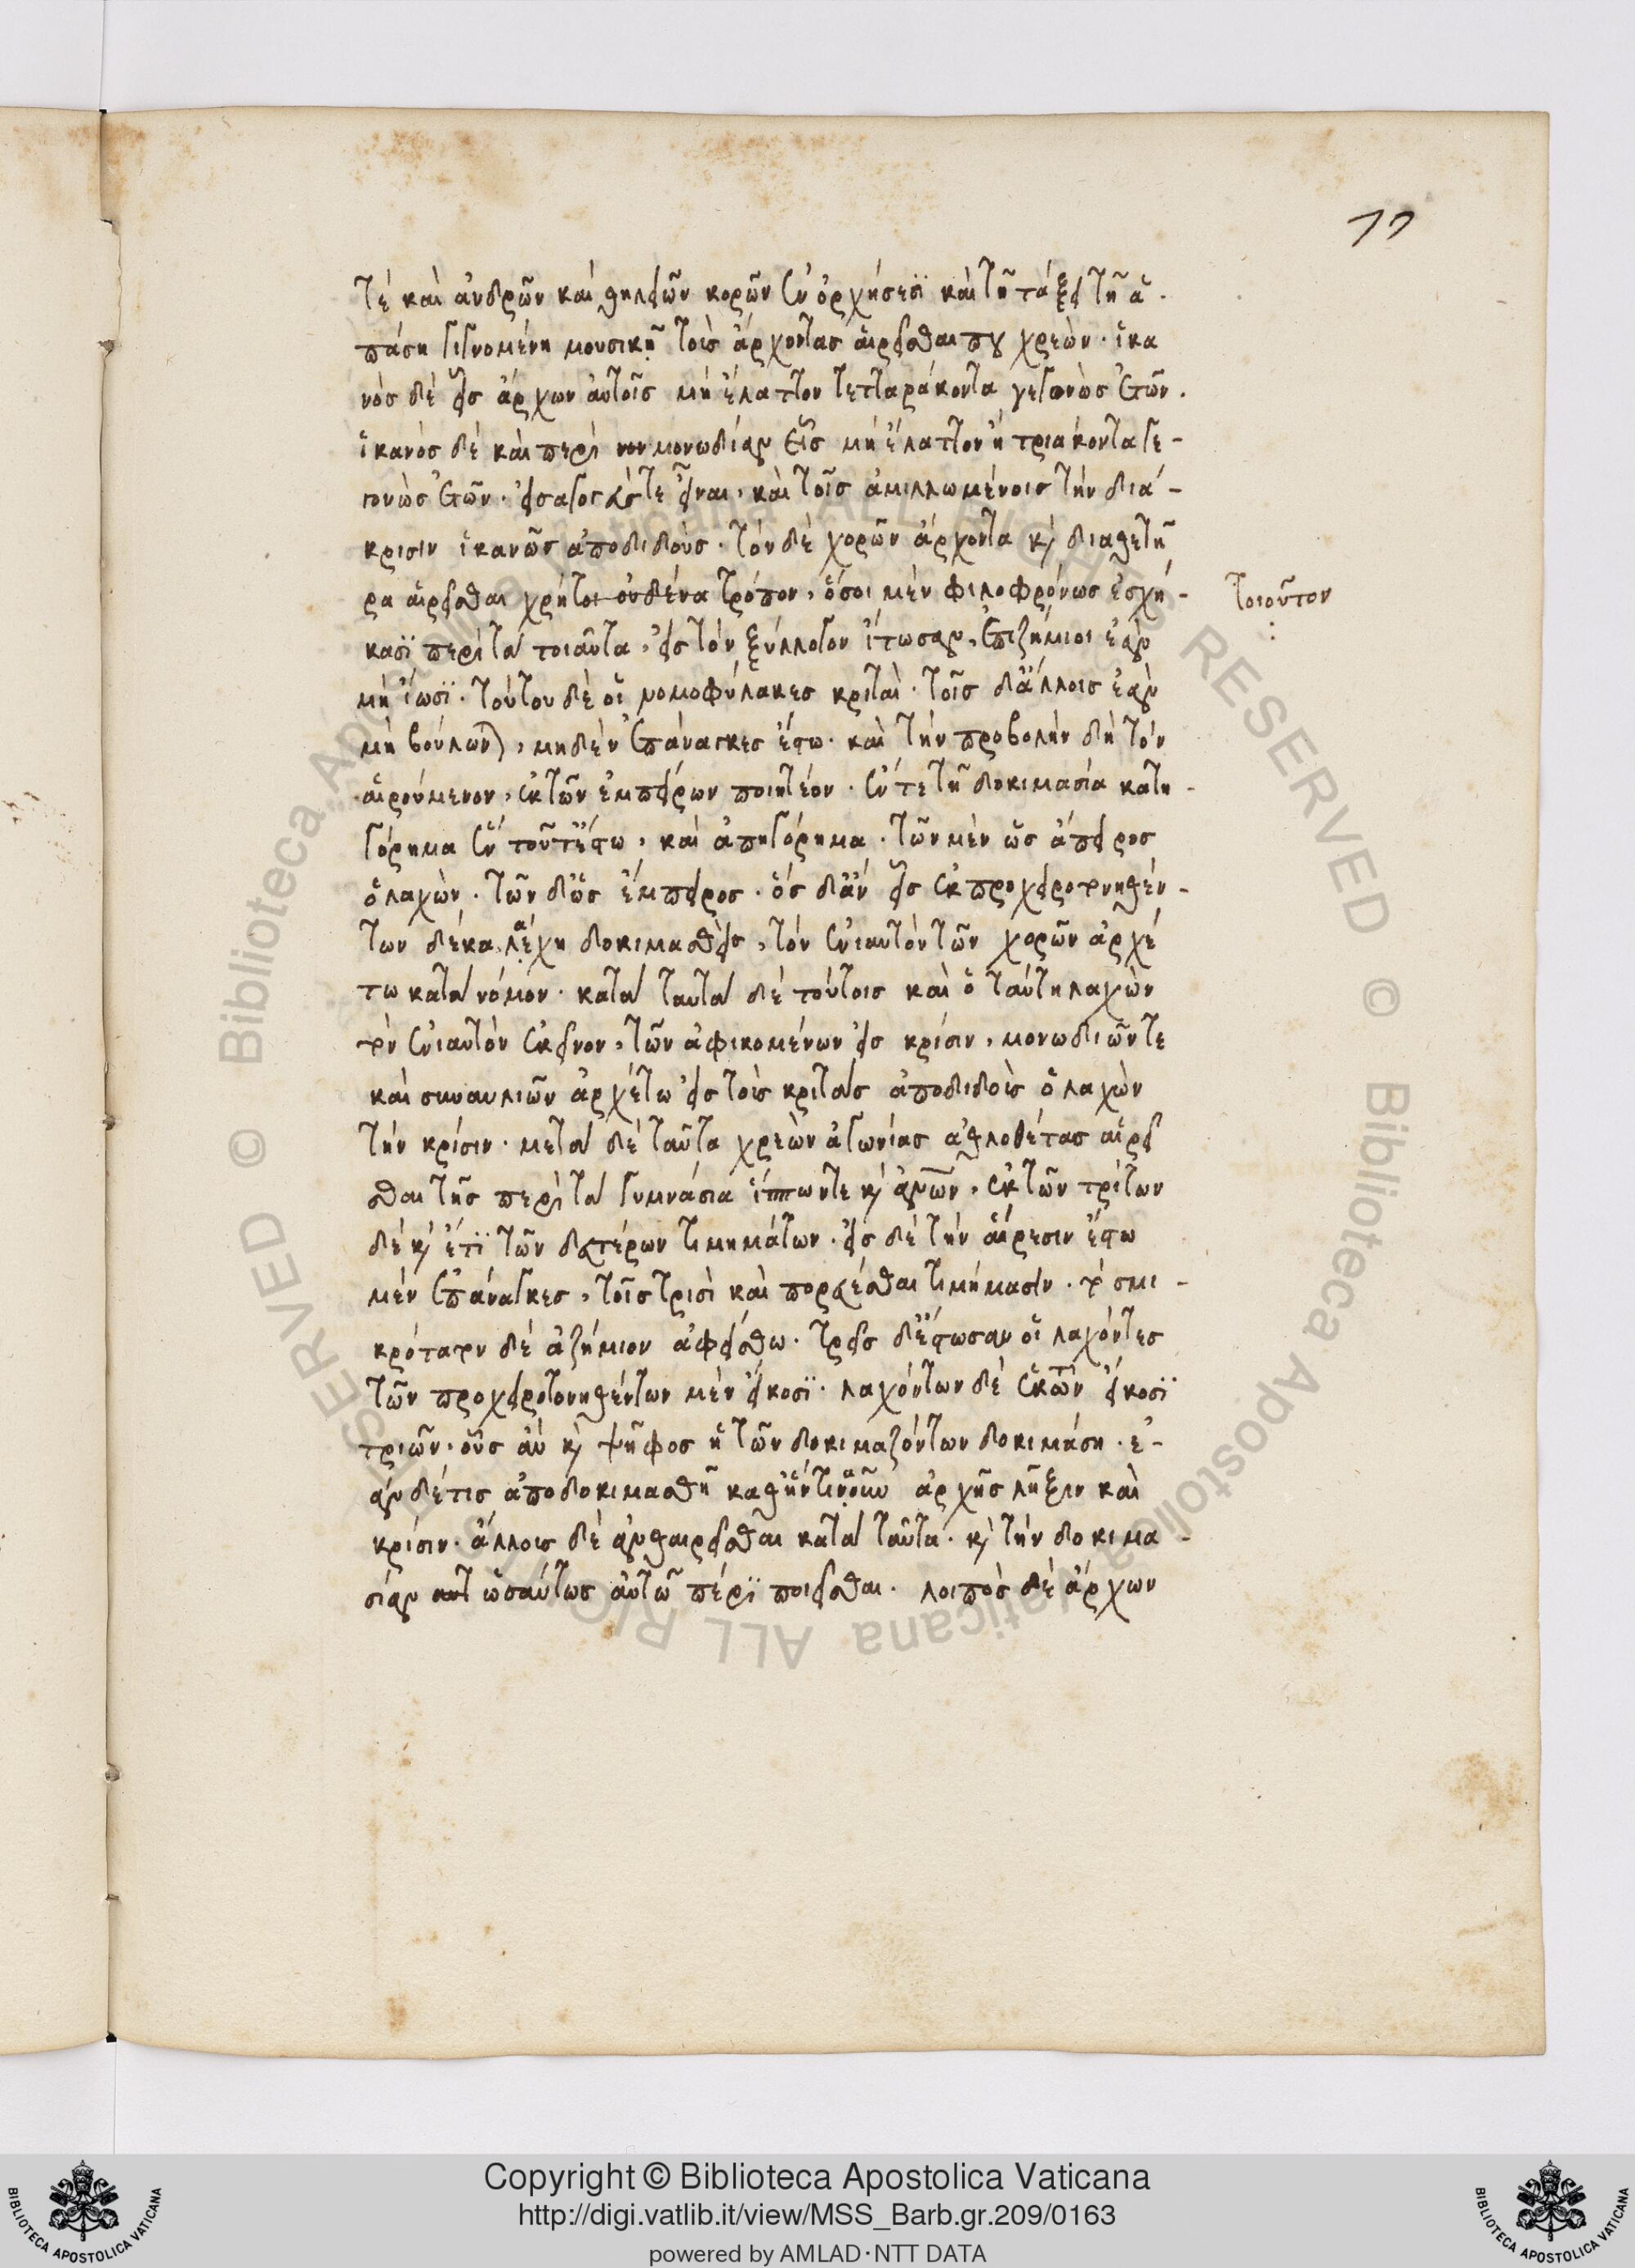 77
τὲ καὶ ἀνδρῶν καὶ θηλειῶν κορῶν ἐν ὀρχήσεσϊ καὶ τῆ τάξει τῆ ἁ-
πάση γιγνομένη μουσικῆ τοὺς ἄρχοντας αἱρεῖσθαι που χρεὼν· ἱκα
νὸς δὲ εἷς ἄρχων αὐτοῖς μὴ ἔλαττον τετταράκοντα γεγονὼς ἐτῶν.
ἱκανὸς δὲ καὶ περὶ μονωδίαν εἷς μὴ ἔλαττον ἢ τριάκοντα γε-
γονὼς ἐτῶν· εἰσαγωγεύς τε εἶναι, καὶ τοῖς ἁμιλλωμένοις τὴν διά-
κρισιν ἱκανῶς ἀποδιδούς· τὸν δὲ χορῶν ἄρχοντα καὶ διαθετῆ
ρα αἱρεῖσθαι χρὴ τοι οὐδένα τρόπον, ὅσοι μὲν φιλοφρόνως ἐσχή-
τοιοῦτον
κασϊ περὶ τὰ τοιαῦτα, εἰς τὸν ξύλλογον ἴτωσαν, ἐπιζήμιοι ἐὰν
μὴ ἴωσϊ· τούτου δὲ οἱ νομοφύλακες κριταὶ· τοῖς δ' ἄλλοις ἐὰν
μὴ βούλωνται, μηδὲν ἐπάναγκες ἔστω· καὶ τὴν προβολὴν δὴ τὸν
αἱρούμενον, ἐκ τῶν ἐμπείρων ποιητέον· ἔν τε τῆ δοκιμασία κατη-
γόρημα ἓν τοῦτ' ἔστω, καὶ ἀπηγόρημα· τῶν μὲν ὡς ἄπειρος
ὁ λαχὼν· τῶν δ' ὡς ἔμπειρος· ὃς δ' ἂν εἷς ἐκ προχειροτονηθέν-
των δέκα λάχη δοκιμασθεὶς, τὸν ἐνιαυτὸν τῶν χορῶν ἀρχέ
τω κατὰ νόμον· κατὰ ταυτὰ δὲ τούτοις καὶ ὁ ταύτη λαχὼν
τὸν ἐνιαυτὸν ἐκεῖνον, τῶν ἀφικομένων εἰς κρίσιν, μονωδιῶν τε
καὶ συναυλιῶν ἀρχέτω εἰς τοὺς κριτὰς ἀποδιδοὺς ὁ λαχὼν
τὴν κρίσιν· μετὰ δὲ ταῦτα χρεὼν ἀγωνίας ἀθλοθέτας αἱρεῖ
σθαι τῆς περὶ τὰ γυμνάσιά ἵππων τε καὶ ἀνθρώπων, ἐκ τῶν τρίτων
δὲ καὶ ἔτϊ τῶν δευτέρων τιμημάτων· εἰς δὲ τὴν αἵρεσιν ἔστω
μὲν ἐπάναγκες, τοῖς τρισὶ καὶ πορεύεσθαι τιμήμασιν· τὸ σμι-
κρότατον δὲ ἀζήμιον ἀφείσθω· τρεῖς δ' ἔστωσαν οἱ λαχόντες
τῶν προχειροτονηθέντων μὲν εἴκοσϊ· λαχόντων δὲ ἐκ τῶν εἴκοσϊ
τριῶν· οὓς ἂν καὶ ψῆφος ἡ τῶν δοκιμαζόντων δοκιμάση· ἐ-
ὰν δέ τις ἀποδοκιμασθῆ καθ' ἥντιναοῦν ἀρχῆς λῆξιν καὶ
κρίσιν· ἄλλους δὲ ἀνθαιρεῖσθαι κατὰ ταῦτά· καὶ τὴν δοκιμα-
σίαν ὡσαύτως αὐτῶ πέρϊ ποιεῖσθαι· λοιπὸς δὲ ἄρχων
© Biblioteca Apostolica Vaticana ALL RIGHTS RESERVED
BIBLIOTECA APOSTOLICA VATICANA
Copyright © Biblioteca Apostolica Vaticana
http://digi.vatlib.it/view/MSS_Barb.gr.209/0163
powered by AMLAD·NTT DATA
BIBLIOTECA APOSTOLICA VATICANA